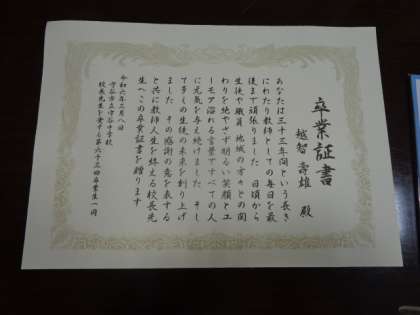 卒業証書
越智壽雄 殿
あなたは三十三年間という長き
にわたり教師としての毎日を最
後まで頑張りました 日頃から
生徒や職員 地域の方々との関
わりを絶やさず明るい笑顔とユ
ーモア溢れる言葉ですべての人
に元気を与え続けました そし
て多くの生徒の未来を創り上げ
ました その感謝の意を表する
と共に教師人生を終える校長先
生へこの卒業証書を贈ります
令和六年三月八日
守谷市立守谷中学校
校長先生を愛する第六十三回卒業生一同